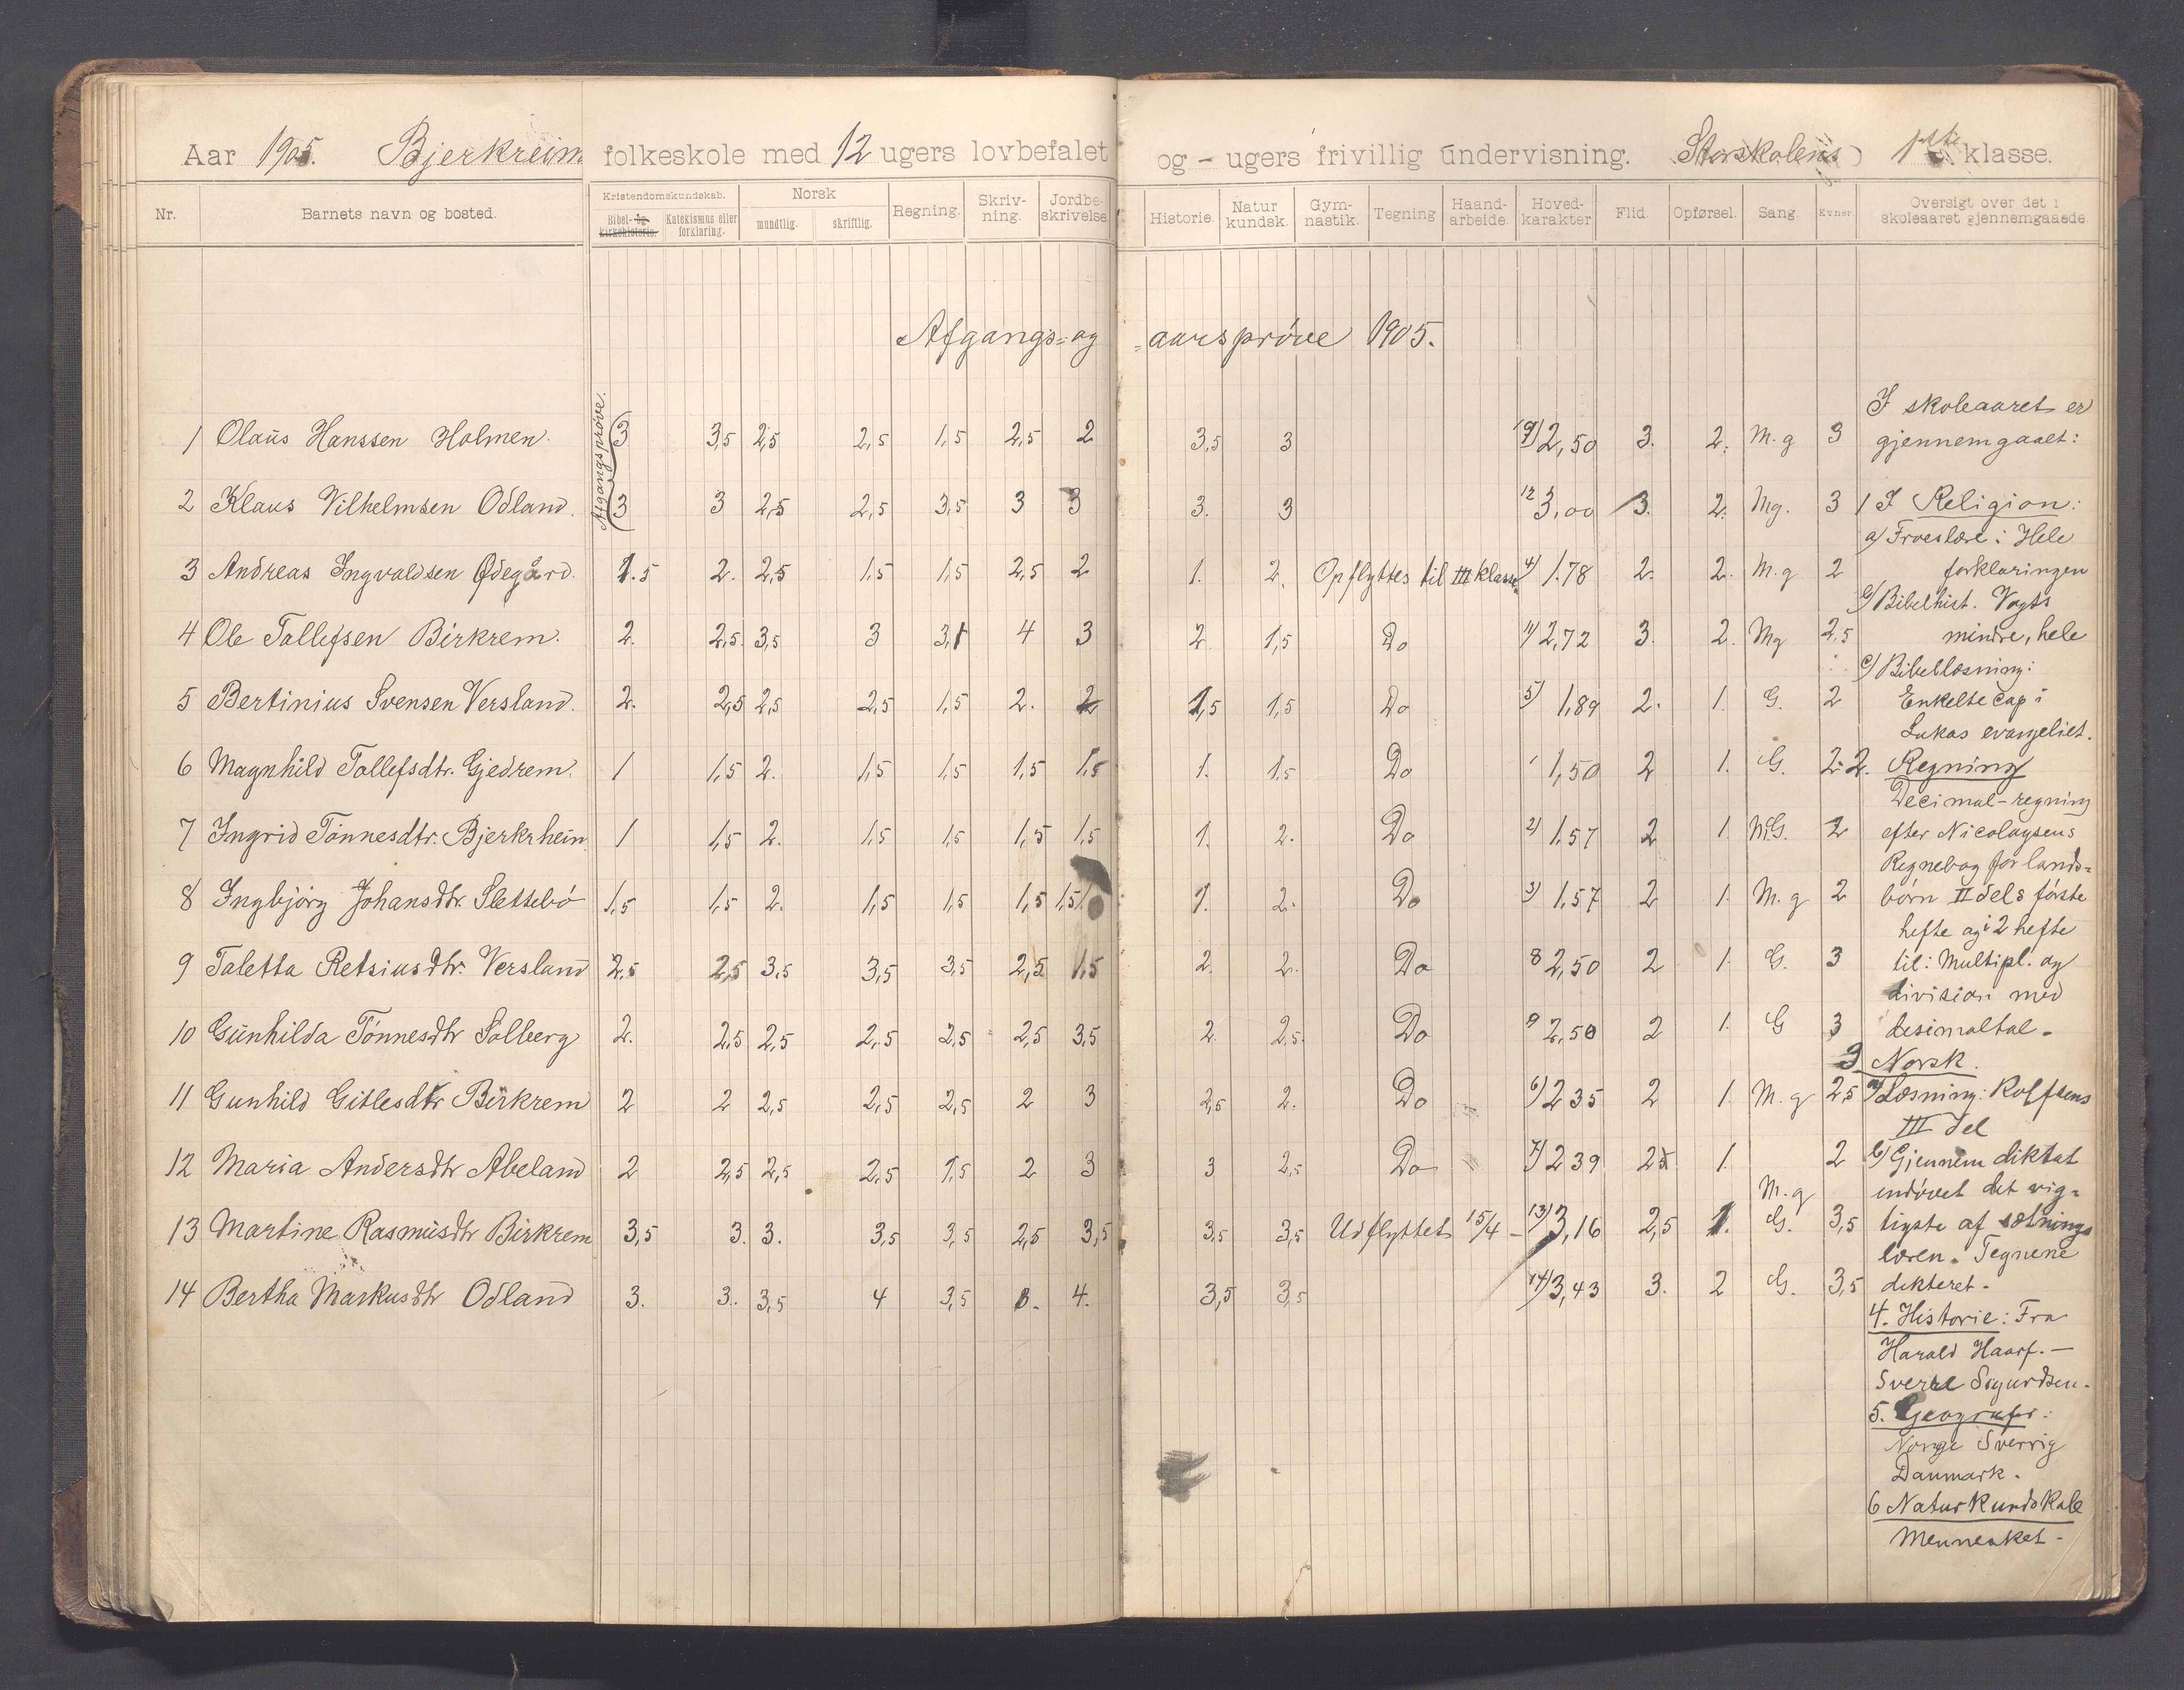 Aar 1905. Bjerkreim folkeskole med 12 ugers lovbefalet og - ugers frivillig undervisning. Storskolens 1ste klasse.
Nr. Barnets navn og bosted. Kristendomskundskab. Bibel- og kirkehistorie. Katekismus eller forklaring. Norsk mundtlig. skriftlig. Regning. Skrivning. Jordbeskrivelse Historie. Natur kundsk. Gymnastik. Tegning Haandarbeide. Hovedkarakter Flid. Opførsel. Sang. Evner Oversigt over det i skoleaaret gjennemgaaede
Afgangs= og =aarsprøve 1905.
Afgangsprøve.
1 Olaus Hanssen Holmen. 3 3,5 2,5 2,5 1,5 2,5 2 3,5 3 2,50 3. 2. M.g 3
2 Klaus Vilhelmsen Odland. 3 3 2,5 2,5 3,5 3 3 3. 3 12 3,00 3. 2. Mg. 3
3 Andreas Ingvaldsen Ødegård. 1.5 2. 2,5 1,5 1,5 2,5 2 1. 2. Opflyttes til III klasse 4) 1.78 2. 2. M.g 2
4 Ole Tollefsen Birkrem. 2. 2,5. 3,5 3 4 3 2. 1,5 Do 11) 2,72 3. 2. Mg 2,5
5 Bertinius Svensen Versland. 2. 2,5 2,5 2,5 1,5 2. 2 1,5 1,5 Do 5) 1,89 2. 1. G. 2
6 Magnhild Tollefsdtr. Gjedrem. 1 1,5 2. 1,5 1,5 1,5 1,5 1. 1,5 Do 1,50 2 1. G. 2.
7 Ingrid Tønnesdtr. Bjerkrheim 1 1,5 2. 1,5 1,5 1,5 1,5 1. 2. Do 2) 1,57 2 1. M.G. 2
8 Ingbjörg Johansdtr. Slettebø 1,5 1,5 2. 1,5 1,5 1,5 1,5 1. 2. Do 3) 1,57 2 1. M.g 2
9 Taletta Retsiusdtr. Versland 2,5 2,5 3,5 3,5 3,5 2,5 1,5 2. 2. Do 8 2,50 2 1. G. 3
10 Gunhilda Tönnesdtr Solberg 2. 2,5 2,5 2,5 2,5 2,5 3,5 2. 2,5. Do 9 2,50 2 1. G 3
11 Gunhild Gitlesdtr Birkrem 2 2 2,5 2,5 2,5 2 3 2,5 2. Do 6) 2 35 2 1. M.g 2,5
12 Maria Andersdtr Abeland 2 2,5 2,5 2,5 1,5 2 3 3 2,5 Do 7) 2 39 2,5 1. M.g 2
13 Martine Rasmusdtr Birkrem 3,5 3. 3. 3,5 3,5 2,5 3,5 3,5 3,5 Udflyttet 15/4 - 13) 3,16 2,5 1. G. 3,5
14 Bertha Markusdtr Odland 3. 3. 3,5 4 3,5 4. 3,5 3,5 14) 3,43 3. 2 G. 3,5
I skoleaaret er
gjennemgaaet:
1 I Religion:
a) Troeslære: Hele
forklaringen
b) Bibelhist. Vogts
mindre, hele
c) Bibellæsning:
Enkelte cap i
Lukas evangeliet.
2. Regning
Decimal-regning
efter Nicolaysens
Regnebog for lands=
børn II dels første
hefte og i 2 hefte
til: Multipl. og
division med
desimaltal.
3 Norsk.
a) Læsning: Rolfsens
III del
b) Gjennem diktat
indøvet det vig=
tigste af sætnings
læren. Tegnene
dikteret.
4. Historie: Fra
Harald Haarf. —
Sverre Sigurdsen.
5. Geografi:
Norge Sverrig
Danmark.
6 Naturkundskab
Mennesket.